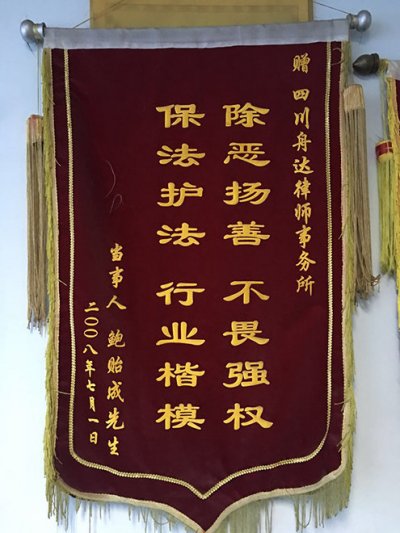 赠 四川舟达律师事务所
除恶扬善 不畏强权
保法护法 行业楷模
当事人 鲍贻成先生
二〇〇八年七月一日